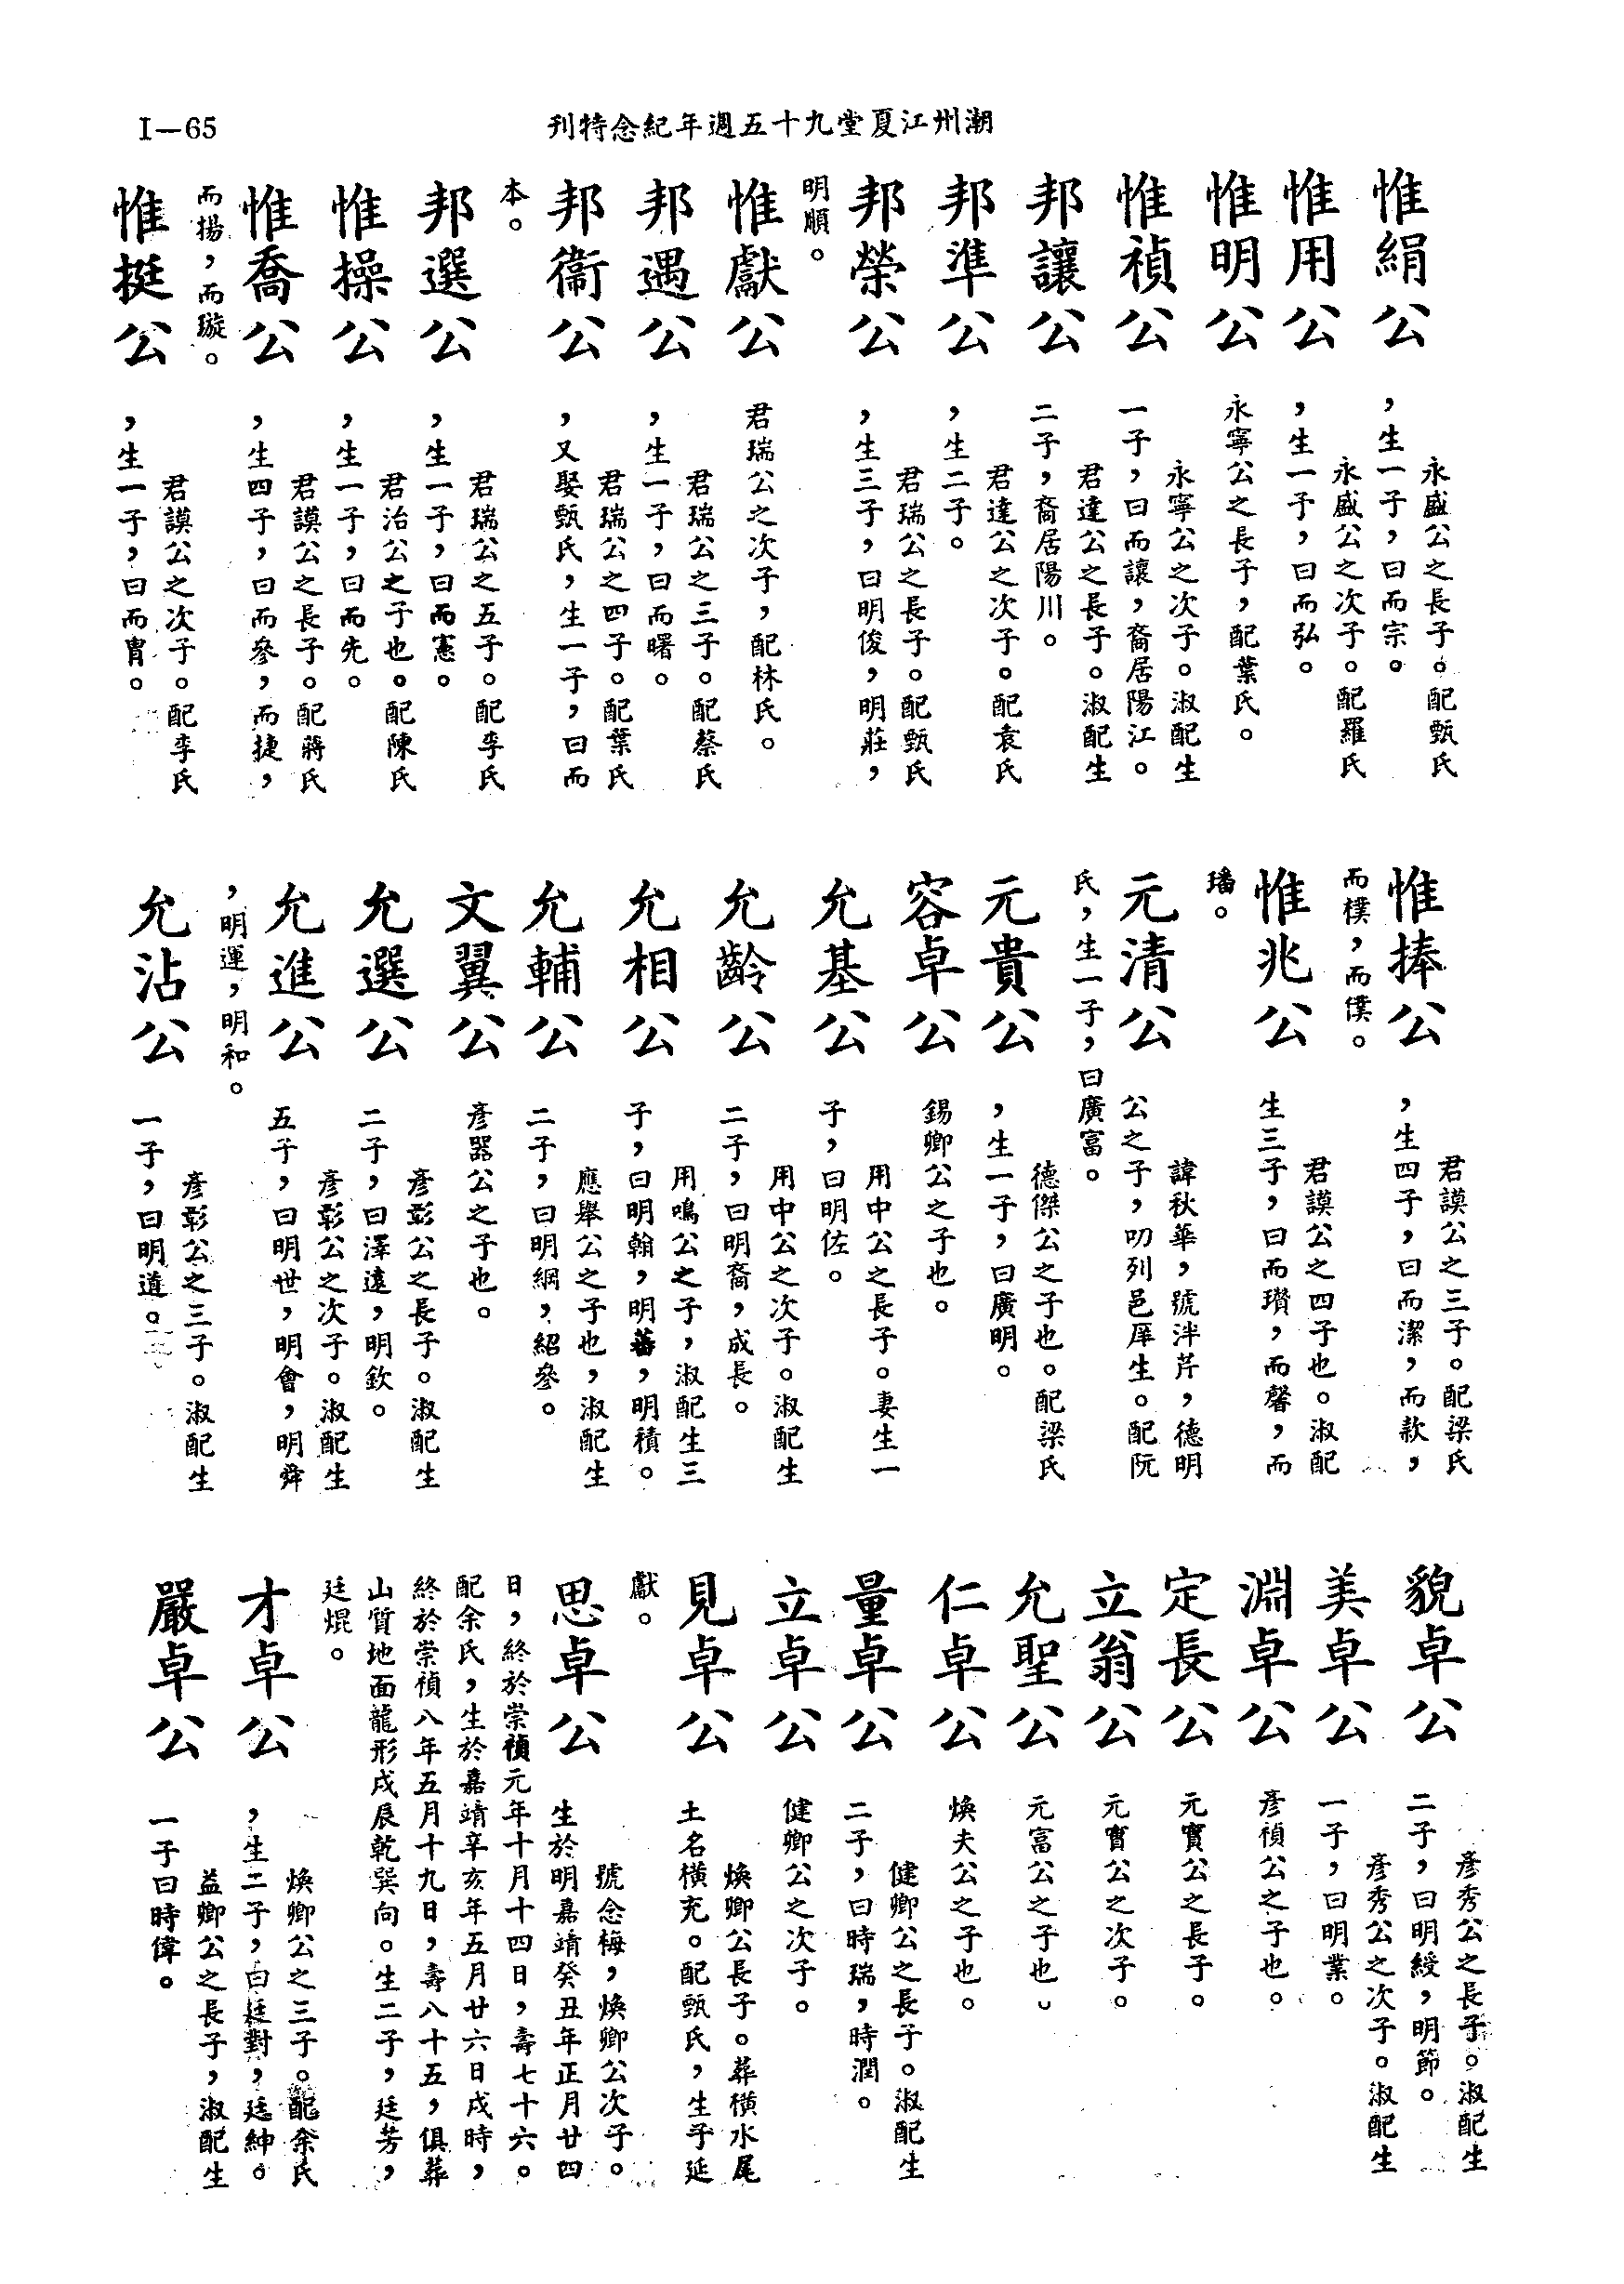 I—65
潮州江夏堂九十五週年紀念特刊
惟絹公
永盛公之長子。配甄氏
，生一子，曰而宗。
惟用公
永盛公之次子。配羅氏
，生一子，曰而弘。
惟明公
永寧公之長子，配葉氏。
惟禎公
永寧公之次子。淑配生
一子，曰而讓，裔居陽江。
邦讓公
君達公之長子。淑配生
二子，裔居陽川。
邦準公
君達公之次子。配袁氏
，生二子。
邦榮公
君瑞公之長子。配甄氏
，生三子，曰明俊，明莊，
明順。
惟獻公
君瑞公之次子，配林氏。
邦遇公
君瑞公之三子。配蔡氏
，生一子，曰而曙。
邦衞公
君瑞公之四子。配葉氏
，又娶甄氏，生一子，曰而
本。
邦選公
君瑞公之五子。配李氏
，生一子，曰而憲。
惟操公
君治公之子也。配陳氏
，生一子，曰而先。
惟喬公
君謨公之長子。配蔣氏
，生四子，曰而參，而捷，
而揚，而璇。
惟挺公
君謨公之次子。配李氏
，生一子，曰而胄。
惟捧公
君謨公之三子。配梁氏
，生四子，曰而潔，而款，
而樸，而僕。
惟兆公
君謨公之四子也。淑配
生三子，曰而瓚，而馨，而
璠。
元清公
諱秋華，號泮芹，德明
公之子，叨列邑庠生。配阮
氏，生一子，曰廣富。
元貴公
德傑公之子也。配梁氏
，生一子，曰廣明。
容卓公
錫卿公之子也。
允基公
用中公之長子。妻生一
子，曰明佐。
允齡公
用中公之次子。淑配生
二子，曰明裔，成長。
允相公
用鳴公之子，淑配生三
子，曰明翰，明蕃，明積。
允輔公
應舉公之子也，淑配生
二子，曰明綱，紹參。
文翼公
彥器公之子也。
允選公
彥彰公之長子。淑配生
二子，曰澤遠，明欽。
允進公
彥彰公之次子。淑配生
五子，曰明世，明會，明舜
，明運，明和。
允沾公
彥彰公之三子。淑配生
一子，曰明道。
貌卓公
彥秀公之長子。淑配生
二子，曰明綬，明節。
美卓公
彥秀公之次子。淑配生
一子，曰明業。
淵卓公
彥禎公之子也。
定長公
元實公之長子。
立翁公
元實公之次子。
允聖公
元富公之子也。
仁卓公
煥夫公之子也。
量卓公
健卿公之長子。淑配生
二子，曰時瑞，時潤。
立卓公
健卿公之次子。
見卓公
煥卿公長子。葬橫水尾
土名橫充。配甄氏，生子延
獻。
思卓公
號念梅，煥卿公次子。
生於明嘉靖癸丑年正月廿四
日，終於崇禎元年十月十四日，壽七十六。
配余氏，生於嘉靖辛亥年五月廿六日戌時，
終於崇禎八年五月十九日，壽八十五，俱葬
山質地面龍形戌辰乾巽向。生二子，廷芳，
廷焜。
才卓公
煥卿公之三子。配余氏
，生二子，曰廷對，廷紳。
嚴卓公
益卿公之長子，淑配生
一子曰時偉。